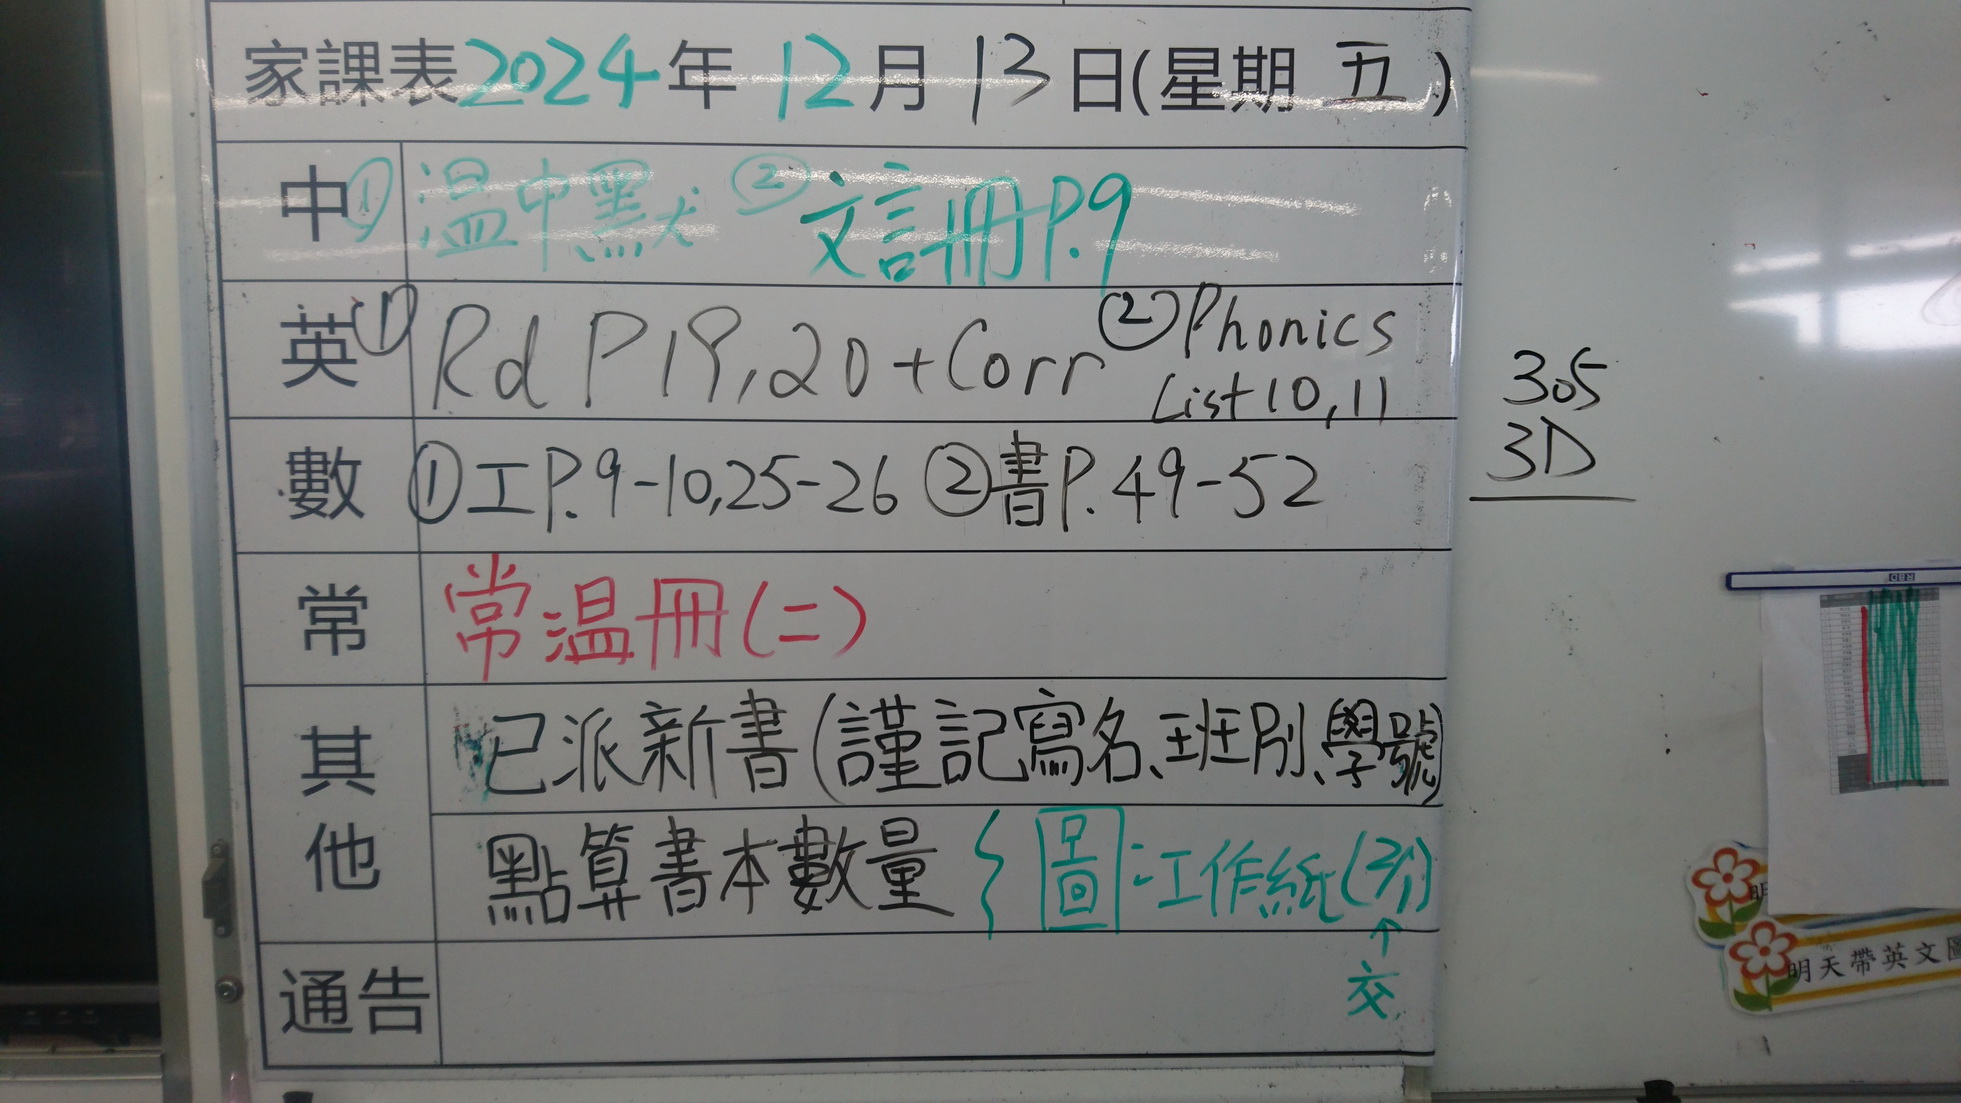 家課表2024年12月13日(星期五)
中 ①溫中默 ②文言冊P.9
英 ①Rd P19,20+Corr ②Phonics
List 10, 11
數 ①工P.9-10,25-26 ②書P.49-52
常 常溫冊(二)
其他 已派新書(謹記寫名、班別、學號)
點算書本數量 圖:工作紙(2/1)
↑
交
通告
305
3D
明天帶英文圖